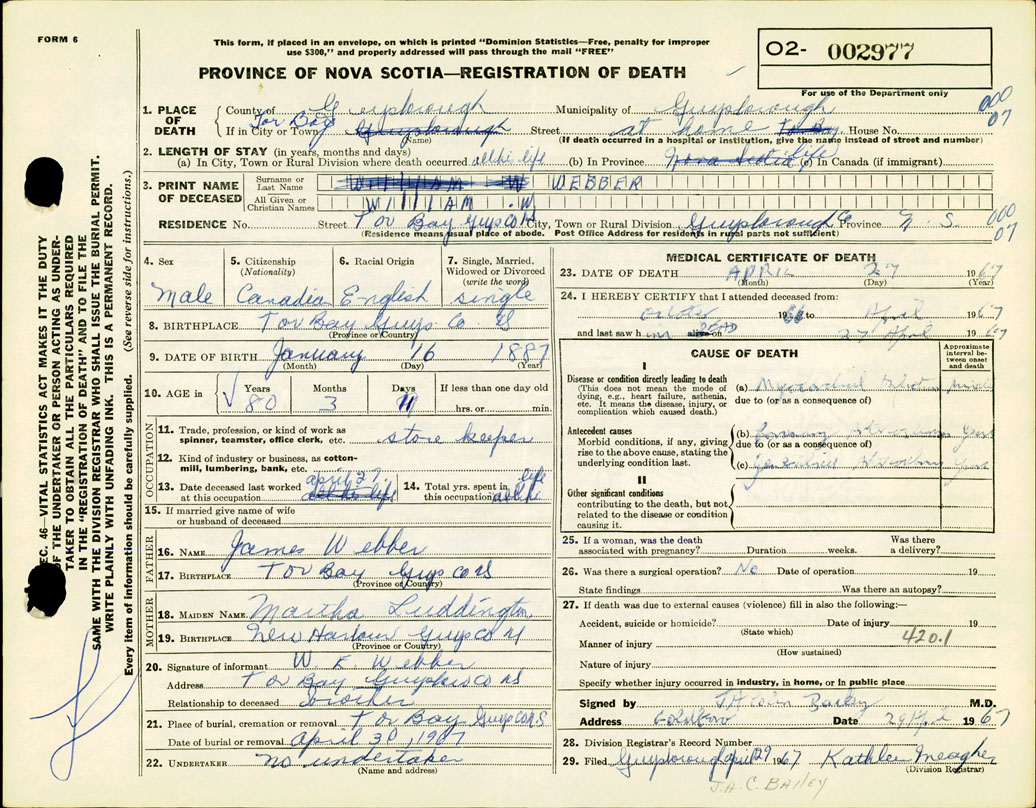 FORM 6
This form, if placed in an envelope, on which is printed "Dominion Statistics—Free, penalty for improper
use $300," and properly addressed will pass through the mail "FREE"
PROVINCE OF NOVA SCOTIA—REGISTRATION OF DEATH
02- 002977
For use of the Department only
1. PLACE OF DEATH
County of Guysborough Municipality of Guysborough 000 07
If in City or Town Tor Bay Guysborough Street at home Tor Bay House No.
(Name) (If death occurred in a hospital or institution, give the name instead of street and number)
2. LENGTH OF STAY (in years, months and days)
(a) In City, Town or Rural Division where death occurred all his life (b) In Province Nova Scotia life (c) in Canada (if immigrant)
3. PRINT NAME OF DECEASED
Surname or Last Name WILLIAM W WEBBER
All Given or Christian Names WILLIAM W
RESIDENCE No. Street Tor Bay Guys Co NS City, Town or Rural Division Guysborough Co Province N.S. 000 07
(Residence means usual place of abode. Post Office Address for residents in rural parts not sufficient)
4. Sex Male
5. Citizenship (Nationality) Canadian
6. Racial Origin English
7. Single, Married, Widowed or Divorced (write the word) single
8. BIRTHPLACE Tor Bay Guys Co. NS
(Province or Country)
9. DATE OF BIRTH January 16 1887
(Month) (Day) (Year)
10. AGE in Years Months Days If less than one day old
80 3 11 hrs. or min.
OCCUPATION
11. Trade, profession, or kind of work as spinner, teamster, office clerk, etc. store keeper
12. Kind of industry or business, as cotton-mill, lumbering, bank, etc.
13. Date deceased last worked at this occupation april 27 all his life
14. Total yrs. spent in this occupation all his life
15. If married give name of wife or husband of deceased
FATHER
16. NAME James Webber
17. BIRTHPLACE Tor Bay Guys Co NS
(Province or Country)
MOTHER
18. MAIDEN NAME Martha Luddington
19. BIRTHPLACE New Harbour Guys Co N
(Province or Country)
20. Signature of informant W. E. Webber
Address Tor Bay Guysboro Co NS
Relationship to deceased brother
21. Place of burial, cremation or removal Tor Bay Guys Co NS
Date of burial or removal April 30, 1967
22. UNDERTAKER no undertaker
(Name and address)
MEDICAL CERTIFICATE OF DEATH
23. DATE OF DEATH APRIL 27 1967
(Month) (Day) (Year)
24. I HEREBY CERTIFY that I attended deceased from:
October 1966 to April 1967
and last saw him alive on DEAD 27 April 1967
CAUSE OF DEATH
Approximate interval between onset and death
I
Disease or condition directly leading to death
(This does not mean the mode of dying, e.g., heart failure, asthenia, etc. It means the disease, injury, or complication which caused death.)
(a) Myocardial
due to (or as a consequence of)
Antecedent causes
Morbid conditions, if any, giving rise to the above cause, stating the underlying condition last.
(b)
due to (or as a consequence of)
(c)
II
Other significant conditions
contributing to the death, but not related to the disease or condition causing it.
25. If a woman, was the death associated with pregnancy? Duration weeks. Was there a delivery?
26. Was there a surgical operation? No Date of operation 19
State findings Was there an autopsy?
27. If death was due to external causes (violence) fill in also the following:—
Accident, suicide or homicide? Date of injury 19
(State which)
Manner of injury 420.1
(How sustained)
Nature of injury
Specify whether injury occurred in industry, in home, or in public place
Signed by Bailey M.D.
Address Goldboro Date 29 April 1967
28. Division Registrar's Record Number
29. Filed Guysborough april 29 1967 Kathleen Meagher
(Division Registrar)
J.A.C. BAILEY
SEC. 46—VITAL STATISTICS ACT MAKES IT THE DUTY
OF THE UNDERTAKER OR PERSON ACTING AS UNDER-
TAKER TO OBTAIN ALL THE PARTICULARS REQUIRED
IN THE "REGISTRATION OF DEATH" AND TO FILE THE
SAME WITH THE DIVISION REGISTRAR WHO SHALL ISSUE THE BURIAL PERMIT.
WRITE PLAINLY WITH UNFADING INK. THIS IS A PERMANENT RECORD.
Every item of information should be carefully supplied. (See reverse side for instructions.)